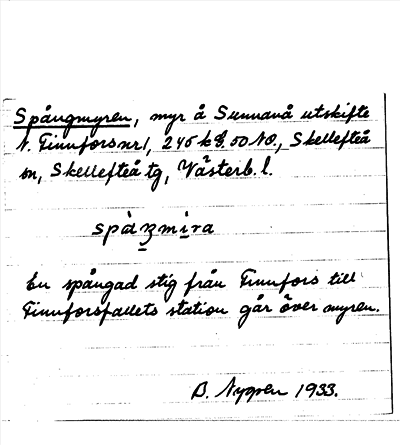 Spångmyren, myr å Sunnanå utskifte
N. Finnfors nr 1, 245 kl. 50 NO., Skellefteå
sn, Skellefteå tg, Västerb. l.
spåŋmira
En spångad stig från Finnfors till
Finnforsfallets station går över myren.
B. Nygren 1933.